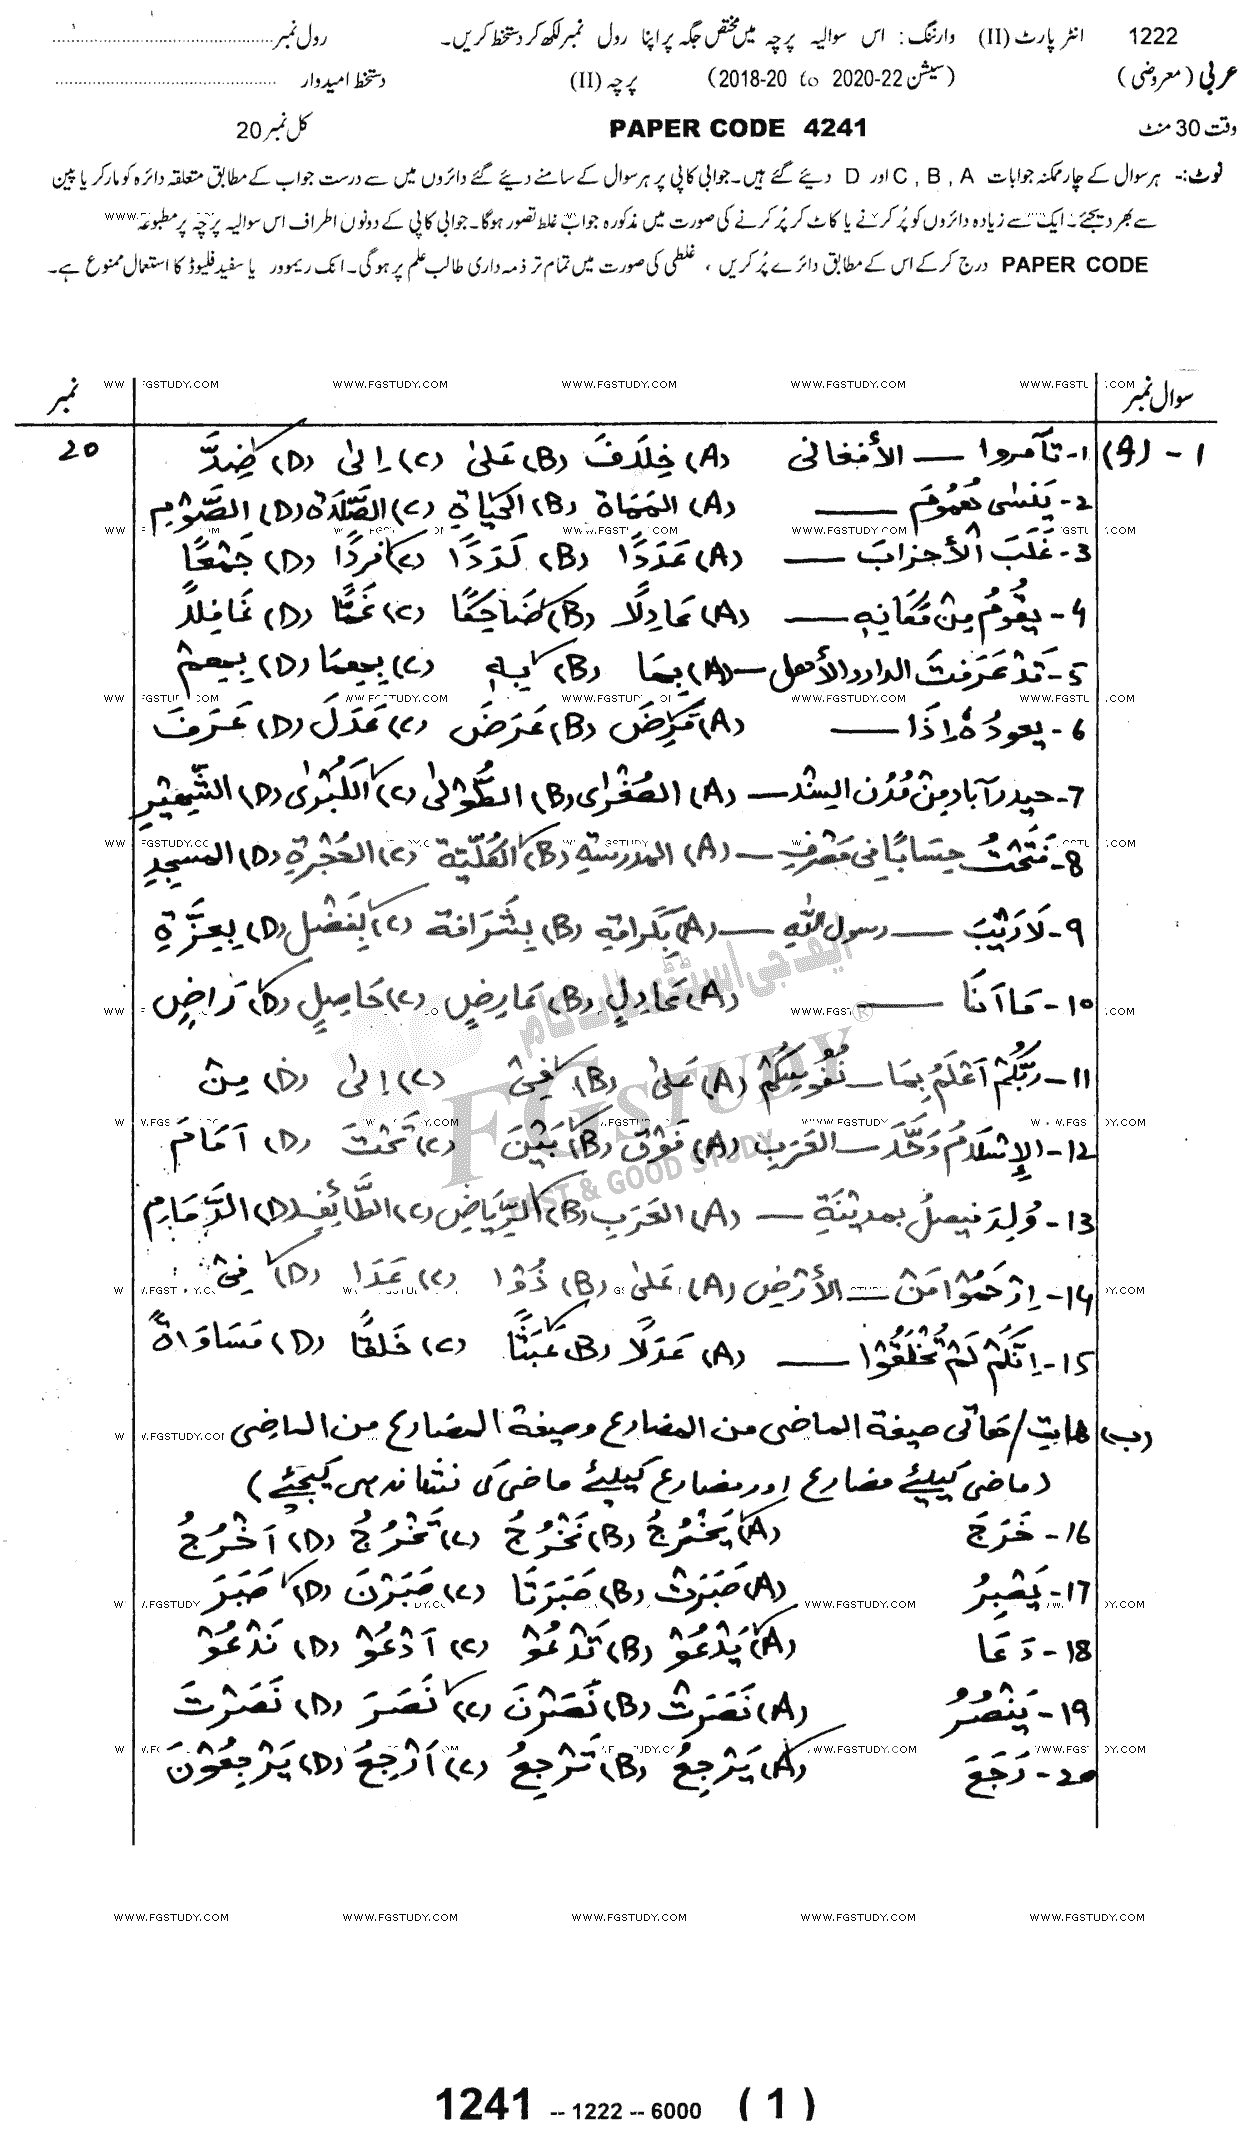 1222 انٹر پارٹ (II) وارننگ: اس سوالیہ پرچہ میں مختص جگہ پر اپنا رول نمبر لکھ کر دستخط کریں۔ رول نمبر
عربی (معروضی) (سیشن 22-2020 to 20-2018) پرچہ (II) دستخط امیدوار
وقت 30 منٹ PAPER CODE 4241 کل نمبر 20
نوٹ:- ہر سوال کے چار ممکنہ جوابات C , B , A اور D دیئے گئے ہیں۔ جوابی کاپی پر ہر سوال کے سامنے دیئے گئے دائروں میں سے درست جواب کے مطابق متعلقہ دائرہ کو مارکر یا پین
سے بھر دیجئے۔ ایک سے زیادہ دائروں کو پُر کرنے یا کاٹ کر پُر کرنے کی صورت میں مذکورہ جواب غلط تصور ہوگا۔ جوابی کاپی کے دونوں اطراف اس سوالیہ پرچہ پر مطبوعہ
PAPER CODE درج کر کے اس کے مطابق دائرے پُر کریں ، غلطی کی صورت میں تمام تر ذمہ داری طالب علم پر ہوگی۔ انک ریموور یا سفید فلیوڈ کا استعمال ممنوع ہے۔
سوال نمبر نمبر
1- (A) 1- تآمروا — الأفغانی (A) خِلَافَ (B) عَلیٰ (C) اِلیٰ (D) ضِدَّ 20
2- یَنسٰی ھُمُومَ — (A) المَمَاۃ (B) الحَیَاۃِ (C) الصَّلَاۃ (D) الصَّوْمِ
3- غَلَبَ الأحزابَ — (A) عَدَدًا (B) لَدَدًا (C) فردًا (D) جَمْعًا
4- یقُومُ مِنْ مَکَانِہٖ — (A) عَادِلًا (B) ضَاحِکًا (C) غَمًّا (D) غَافِلًا
5- قَدْ عَرَفتَ الدار والأھل — (A) بِمَا (B) بِہٖ (C) بِھِمَا (D) بِھِمْ
6- یعودُہٗ اِذَا — (A) مَرِضَ (B) عَرَضَ (C) عَدَلَ (D) عَرَفَ
7- حیدرآباد مِنْ مُدُن السند — (A) الصُغْرٰی (B) الطُّوْلیٰ (C) الکُبْرٰی (D) الشَّھِیْرِ
8- فَتَحْتُ حِسَابًا فِی مَصْرَفِ — (A) المدرسۃِ (B) الکُلِّیَّۃِ (C) الحُجْرۃِ (D) المسجِدِ
9- لَارَیْبَ — رسول اللہِ — (A) بِکَرامَۃِ (B) بِشَرَافۃ (C) بِفَضْلِ (D) بِعِزَّۃِ
10- مَا اَنَا — (A) عَادِلٍ (B) عَارِضٍ (C) حَاصِلٍ (D) رَاضٍ
11- رَبُّکُمْ اَعْلَمُ بِمَا — نُفُوْسِکُمْ (A) عَلیٰ (B) فِیْ (C) اِلیٰ (D) مِنْ
12- الإسْلَامُ وَحَّدَ — العَرَبِ (A) فَوْقَ (B) بَیْنَ (C) تَحْتَ (D) اَمَامَ
13- وُلِدَ فیصلُ بمدینَۃِ — (A) العَرَبِ (B) الرِّیَاضِ (C) الطَّائِفِ (D) الدَّمَامِ
14- اِرْحَمُوْا مَنْ — الأرْضِ (A) عَلیٰ (B) ذُوْا (C) عَدَا (D) فِیْ
15- اِنَّکُمْ لَمْ تُخْلَقُوْا — (A) عَدَلًا (B) عَبَثًا (C) خَلقًا (D) مَسَاوَاۃً
(ب) ھاتِ/ھَاتِی صیغۃ الماضی من المضارع وصیغۃ المضارع من الماضِی
(ماضی کیلئے مضارع اور مضارع کیلئے ماضی کی نشاندہی کیجئے)
16- خَرَجَ (A) یَخْرُجُ (B) نَخْرُجُ (C) تَخْرُجُ (D) اَخْرُجُ
17- یَصْبِرُ (A) صَبَرَتْ (B) صَبَرَتَا (C) صَبَرْنَ (D) صَبَرَ
18- دَعَا (A) یَدْعُوْ (B) تَدْعُوْ (C) اَدْعُوْ (D) نَدْعُوْ
19- یَنْصُرُ (A) نَصَرَتْ (B) نَصَرْنَ (C) نَصَرَ (D) نَصَرْتَ
20- رَجَعَ (A) یَرْجِعُ (B) تَرْجِعُ (C) اَرْجِعُ (D) یَرْجِعُوْنَ
ایف جی اسٹڈی ڈاٹ کام
FG STUDY®
FAST & GOOD STUDY
WWW.FGSTUDY.COM WWW.FGSTUDY.COM WWW.FGSTUDY.COM WWW.FGSTUDY.COM WWW.FGSTUDY.COM
1241 -- 1222 -- 6000 ( 1 )